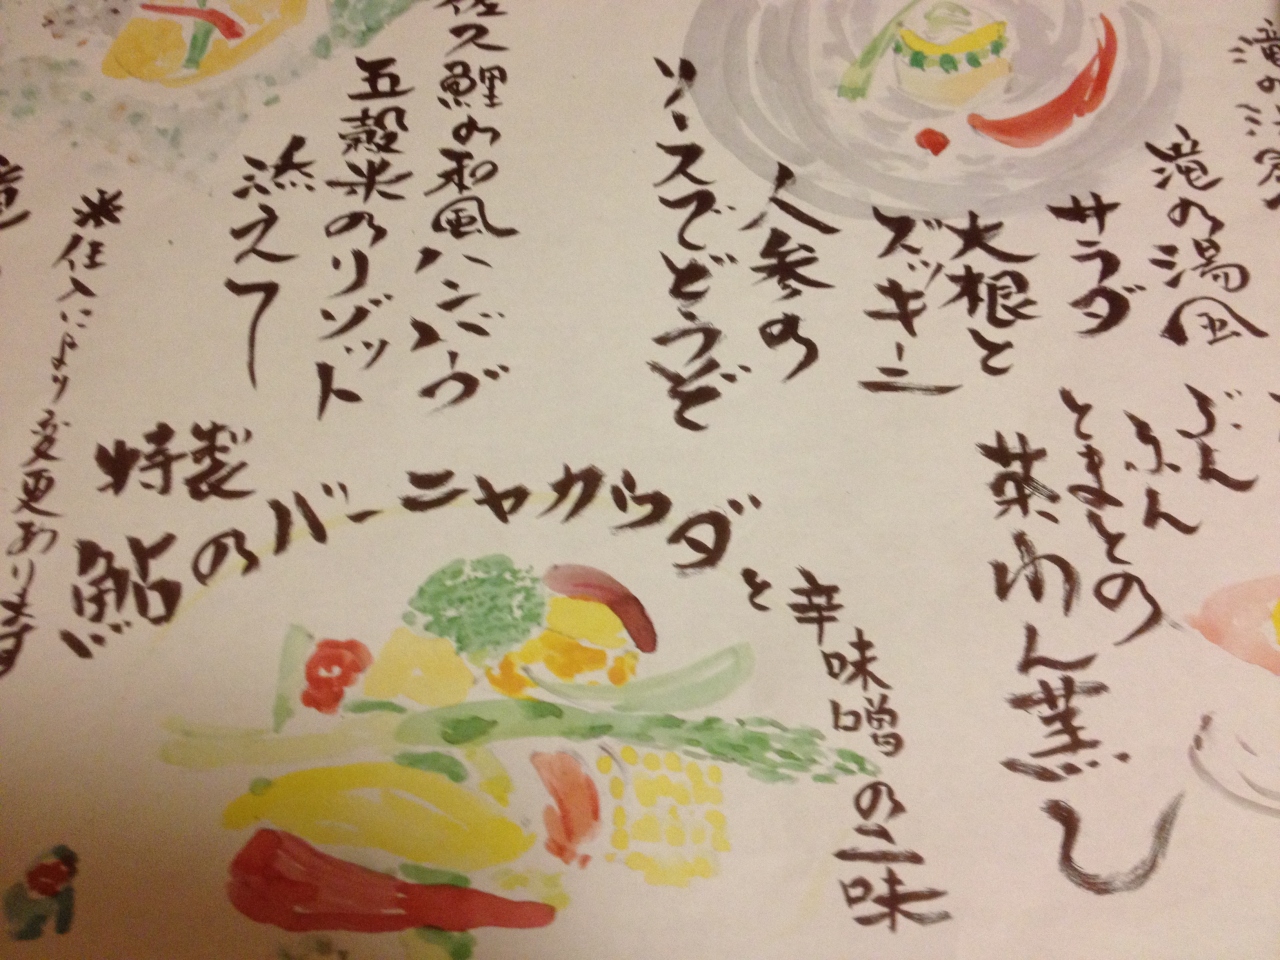 滝の湯風
サラダ
大根と
ズッキーニ
人参の
ソースでどうぞ
ぶんぶん
とまとの
茶わん蒸し
佐久鯉の和風ハンバーグ
五穀米のリゾット
添えて
特製
鮎のバーニャカウダと辛味噌の二味
※仕入により変更あります